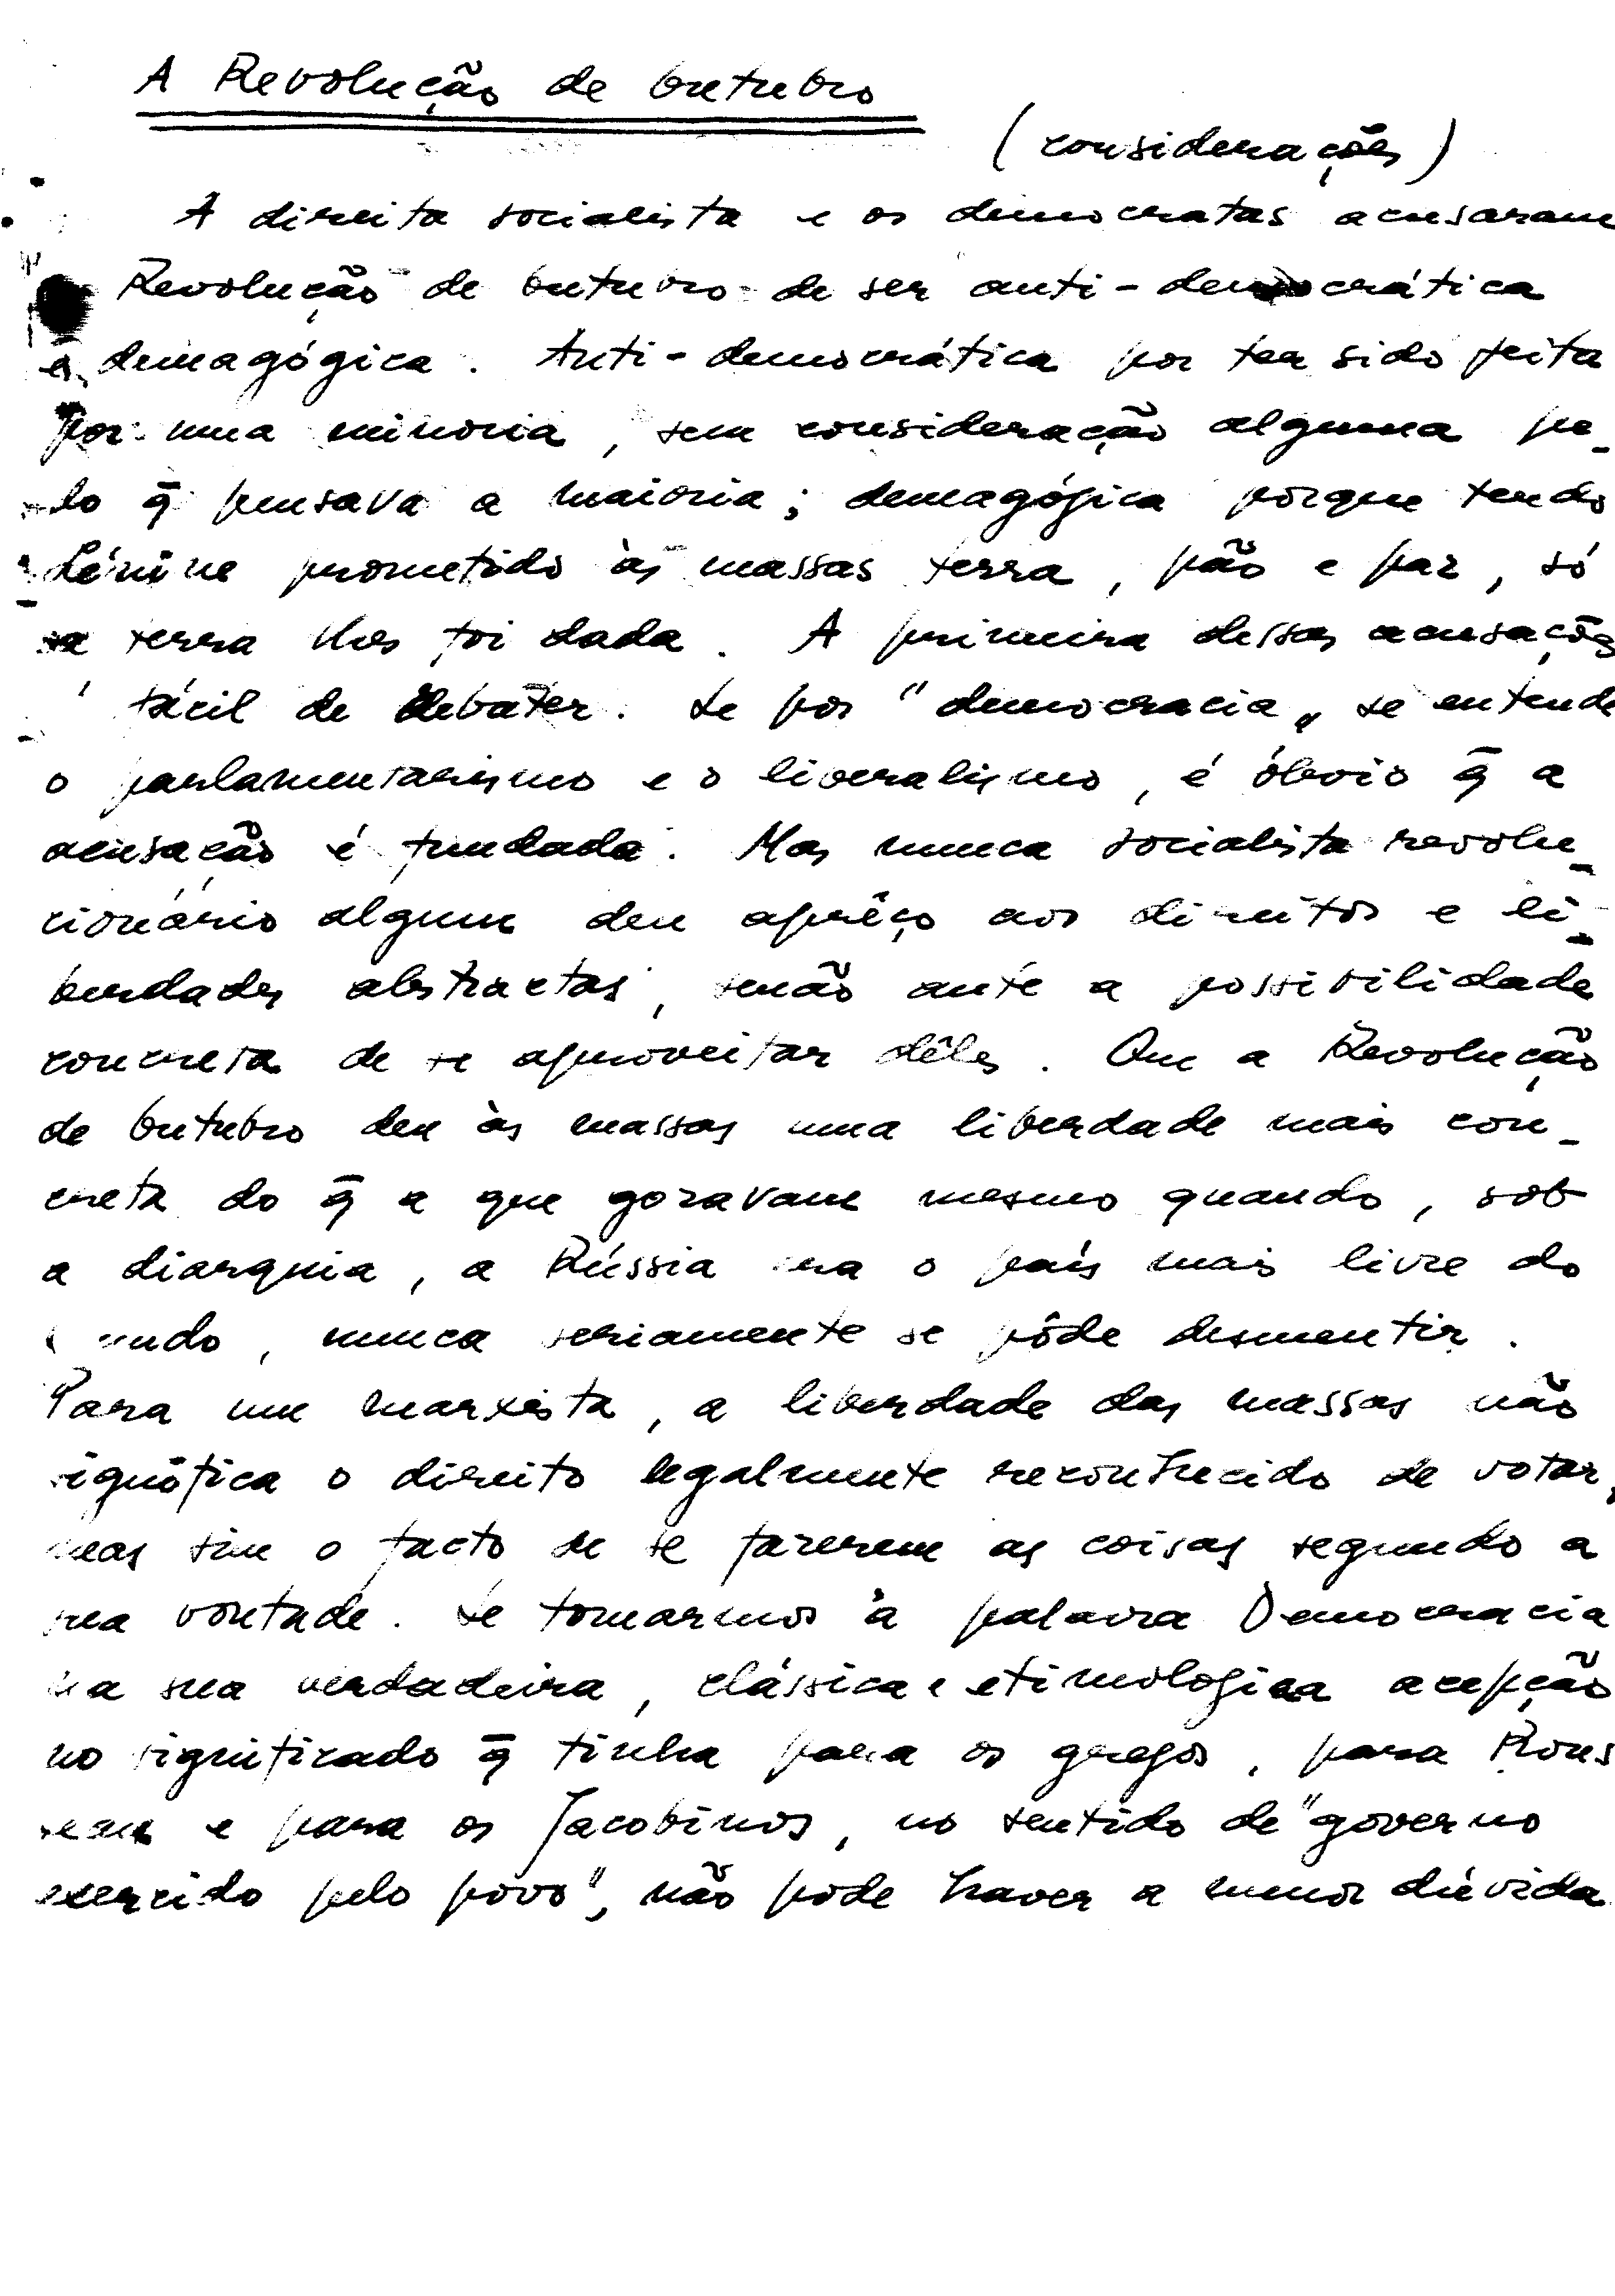 A Revolução de Outubro
(considerações)
A direita socialista e os democratas acusaram
Revolução de Outubro de ser anti-democrática
e demagógica. Anti-democrática por ter sido feita
por uma minoria, sem consideração alguma pe-
lo q̄ pensava a maioria; demagógica porque tendo
Lénine prometido às massas terra, pão e paz, só
a terra lhes foi dada. A primeira dessas acusações
é fácil de debater. Se por "democracia" se entende
o parlamentarismo e o liberalismo, é óbvio q̄ a
acusação é fundada. Mas nunca socialista revolu-
cionário algum deu aprêço aos direitos e li-
berdades abstractas, senão ante a possibilidade
concreta de se aproveitar dêles. Que a Revolução
de Outubro deu às massas uma liberdade mais con-
creta do q̄ a que gozavam mesmo quando, sob
a diarquia, a Rússia era o país mais livre do
mundo, nunca seriamente se pôde desmentir.
Para um marxista, a liberdade das massas não
significa o direito legalmente reconhecido de votar,
mas sim o facto de se fazerem as coisas segundo a
sua vontade. Se tomarmos a palavra Democracia
na sua verdadeira, clássica e etimologica acepção
no significado q̄ tinha para os gregos, para Rous
seau e para os Jacobinos, no sentido de "governo
exercido pelo povo", não pode haver a menor dúvida